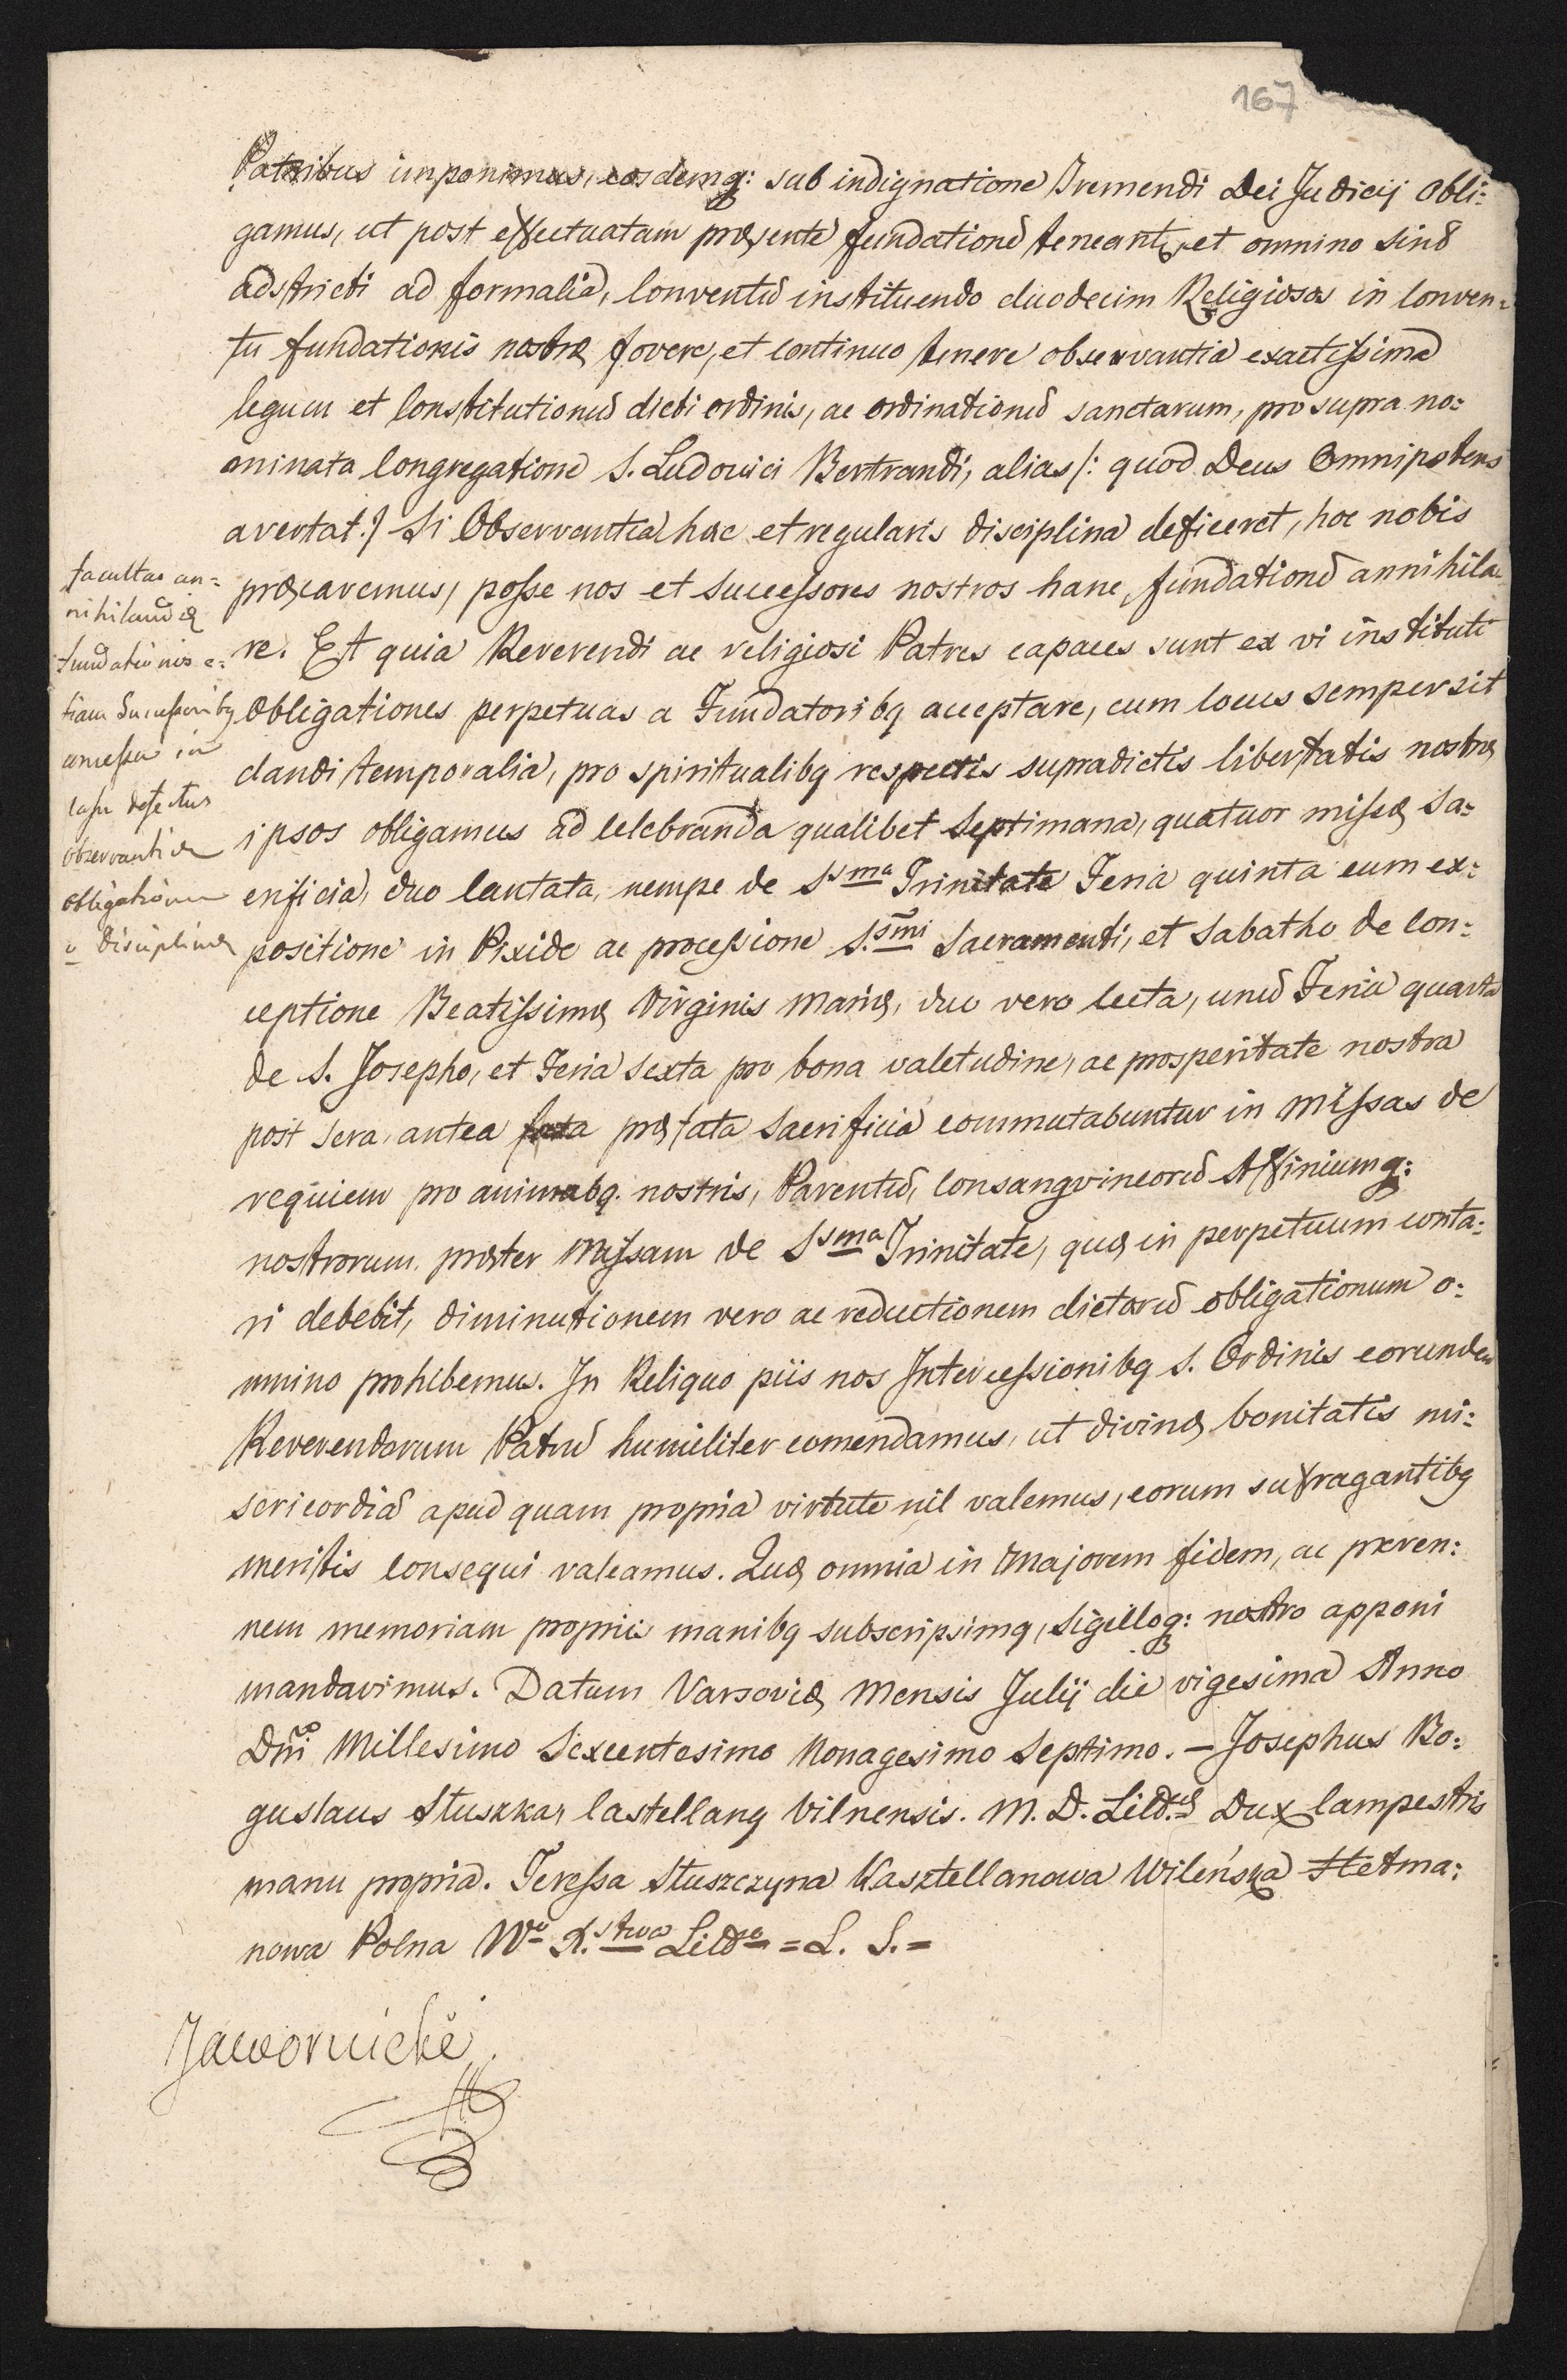 167
Patribus imponimus, eosdemq: sub indignatione tremendi Dei Judicij obli:
gamus, ut post effectuatam præsente fundationē teneantq, et omnino sint
adstricti ad formalia, Conventū instituendo duodecim Religiosos in Conven:
tu fundationis nostræ fovere, et continuo tenere observantia exactissima
legum et Constitutionū dicti ordinis, ac ordinationū sanctarum, pro supra no:
minata Congregatione S. Ludovici Bertrandi, alias /: quod Deus Omnipotens
avertat :/ Si Observantia hæc et regularis disciplina deficeret, hoc nobis
præcavemus, posse nos et Successores nostros hanc fundationē annihila
re. Et quia Reverendi ac religiosi Patres capaces sunt ex vi instituti
Obligationes perpetuas a Fundatoribq acceptare, cum locus semper sit
dandi temporalia, pro spiritualibq respectis supradictis libertatis nostræ
ipsos obligamus ad Celebranda qualibet Septimana, quatuor missæ Sa:
crificia, duo Cantata, nempe de Ssma Trinitate Feria quinta cum ex:
positione in Pixide ac processione S.smi Sacramenti, et Sabatho de Con:
ceptione Beatissimæ Virginis Mariæ, duo vero lecta, unū Feria quarta
de S. Josepho, et Feria sexta pro bona valetudine, ac prosperitate nostra
post sera, antea fata præfata Sacrificia commutabuntur in Missas de
requiem pro animabq. nostris, Parentū, Consangvineorū Affiniumq:
nostrorum præter Missam de Ssma Trinitate, quæ in perpetuum canta:
ri debebit, diminutionem vero ac reductionem dictarū obligationum o:
mnino prohibemus. In Reliquo piis nos Intercessionibq S. Ordinis eorundem
Reverendorum Patrū humiliter comendamus, ut divinæ bonitatis mi:
sericordiā apud quam propria virtute nil valemus, eorum suffragantibq
meritis Consequi valeamus. Quæ omnia in majorem fidem, ac peren:
nem memoriam propriis manibq subscripsimq, Sigilloq: nostro apponi
mandavimus. Datum Varsoviæ Mensis Julij die vigesima Anno
Dni Millesimo Sexcentesimo Nonagesimo Septimo. – Josephus Bo:
guslaus Słuszka, Castellanq Vilnensis. M. D. Litd. Dux Campestris
manu propria. Teressa Słuszczyna Kasztellanowa Wileńska Hetma:
nowa Polna Wo X.stwa Litdo = L. S. =
facultas an:
nihilandæ
fundationis e:
tiam Successoribq
concessa in
Casu defectus
observantiæ
obligationum
e disciplinæ
Jawornicki